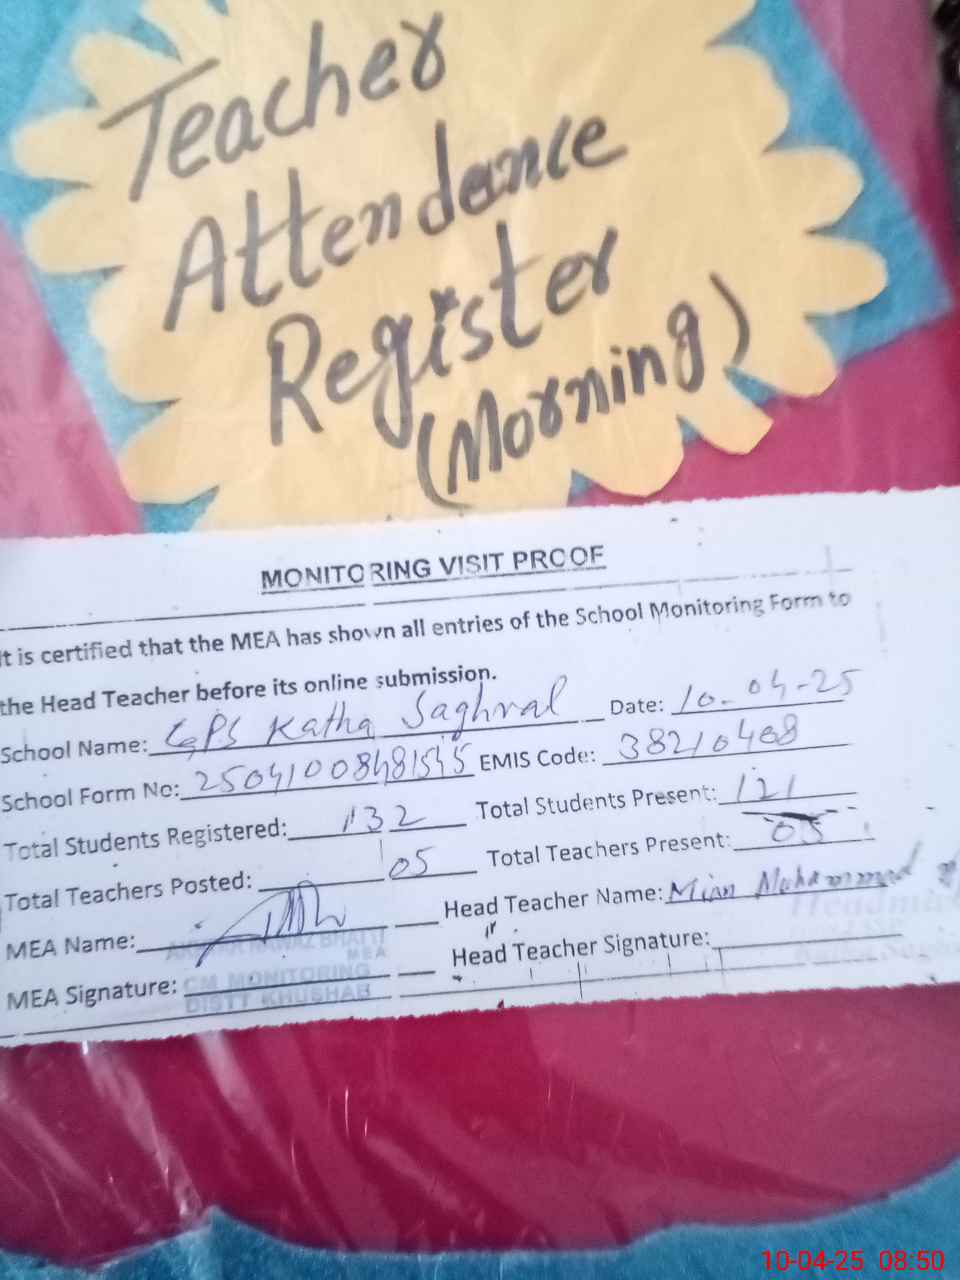 Teacher
Attendance
Register
(Morning)
MONITORING VISIT PROOF
It is certified that the MEA has shown all entries of the School Monitoring Form to
the Head Teacher before its online submission.
School Name: GPS Katha Saghral Date: 10-04-25
School Form No: EMIS Code: 38210408
Total Students Registered: 132 Total Students Present: 121
Total Teachers Posted: 05 Total Teachers Present: 05
MEA Name: Head Teacher Name: Mian Muhammad
NAWAZ BHATTI
MEA
MEA Signature: Head Teacher Signature:
CM MONITORING
DISTT KHUSHAB
10-04-25 08:50